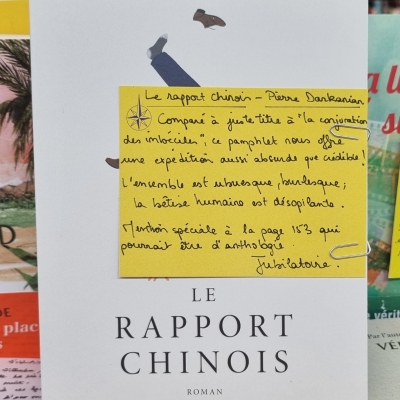 Le rapport chinois - Pierre Darkanian
Comparé à juste titre à "la conjuration
des imbéciles", ce pamphlet nous offre
une expédition aussi absurde que crédible !
L'ensemble est ubuesque, burlesque ;
la bêtise humaine est désopilante.
Mention spéciale à la page 153 qui
pourrait être d'anthologie.
Jubilatoire.
LE
RAPPORT
CHINOIS
ROMAN
place